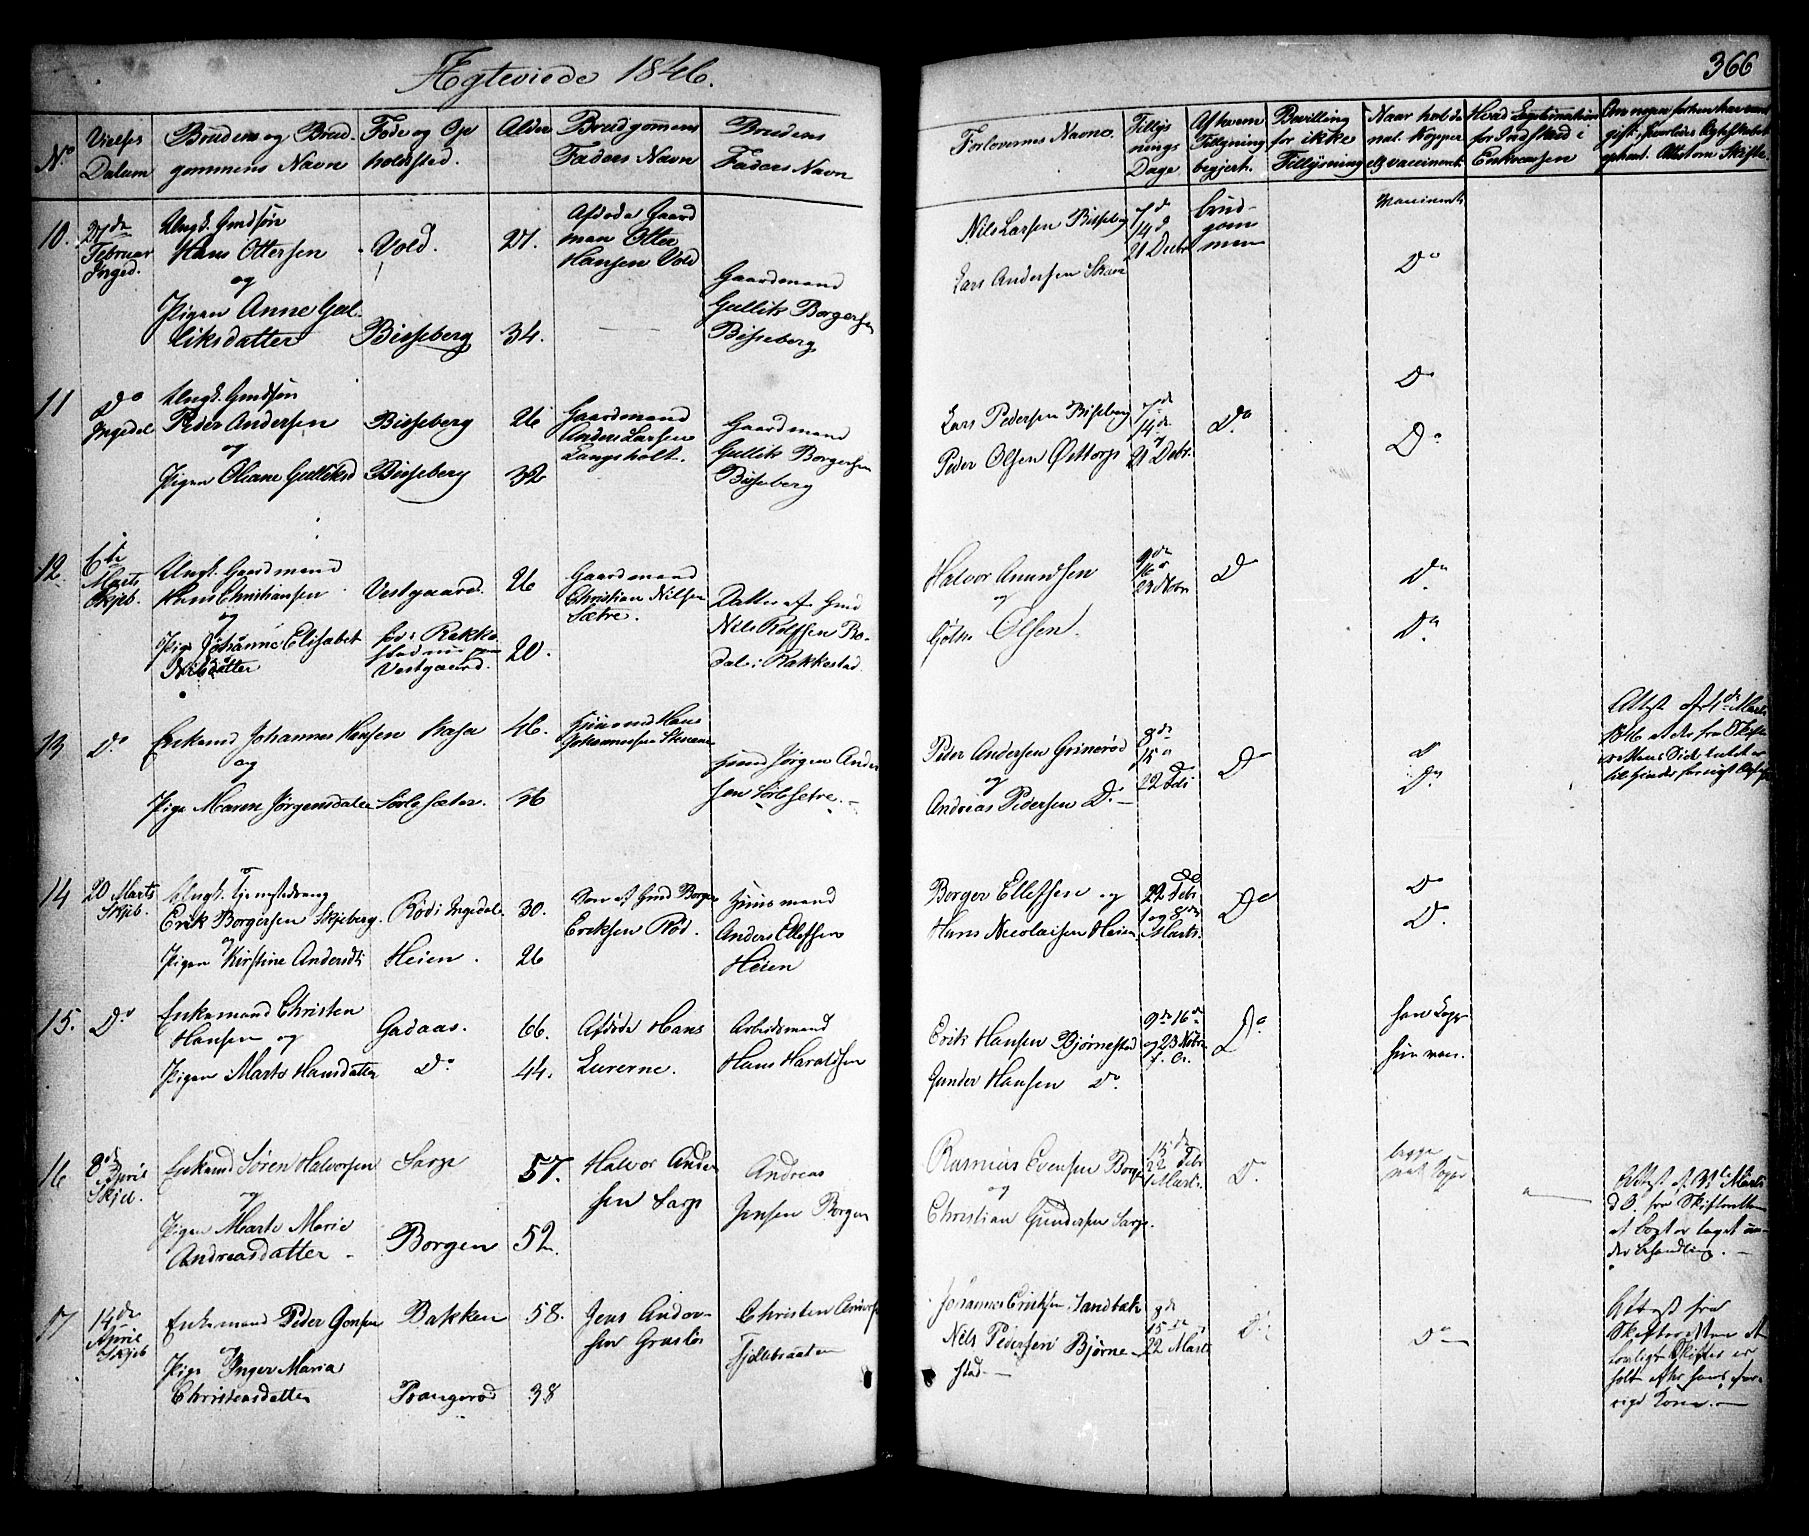 Ægteviede 1846.
366
No
Vielses Datum
Brudens og Brudgommens Navn
Føde og Opholdsted.
Alder
Brudgommens Faders Navn
Brudens Faders Navn
Forlovernes Navne.
Tillysnings Dage
Af hvem Tillysning begjert.
Bevilling for ikke Tillysning
10.
27de Februar Inged.
Ungk. Gmdsøn
Hans Ottersen
og
Pigen Anne Gulliksdatter
Vold.
Bisseberg
27.
34.
Afdøde Gaardman Otter Hansen Vold
Gaardmand Gullik Borgersen Bisseberg
Nils Larsen Bisseberg
Lars Andersen
7de
14 d
21 Decbr
brudgommen
Vaccineret
Do
11
Do
Ingedal
Ungk. Gmdsøn
Peder Andersen
og
Pigen Oliane Gulliksd
Bisseberg
Bisseberg
26
32
Gaardmand Anders Larsen Langsholt.
Gaardmand Gullik Borgersen Bisseberg
Lars Pedersen Bisseberg
Peder Olsen Østtorp
7de
14de
21 Debr.
Do
Do
Do
12.
6te Marts Skjeb.
Ungk. Gaardmand
Hans Christiansen
og
Pige Johanne Elisabet Nilsdatter
Vestgaard.
fød i Rakkestad nu paa Vestgaard.
26
20.
Gaardmand Christian Nilsen Sætre.
Datter af Gmd Nils Rolfsen Bodal i Rakkestad
Halvor Amundsen
og
Olsen.
9de
16 d
23 Novbr
Do
Do
Do
13
Do
Enkemd Johannes Hansen
og
Pige Maren Jørgensdatter
Kasa
Sørlesæter.
46.
36
Huusmd Hans Johannesen
Huusmd Jørgen Andersen Sørlesetre.
Peder Andersen Grinerød
og
Andreas Pedersen Do.
8de
15 d
22 Feb
Do
Do
Do
Attest af 1de Marts 1846
14
20 Marts Skjeb.
Ungk. Tjenestedreng
Erik Borgersen Skjeberg.
og
Pigen Kirstine Andersdt
Rød i Ingedal
Heien.
30.
26
Søn af Gmd Borger Eriksen Rød.
Huusmand Anders Ellefsen Heien
Borger Ellefsen og
Hans Nicolaisen Heien
22 Febr
1 og 8de Marts.
Do
Do
Do
15.
Do
Enkemand Christen Hansen og
Pigen Marte Hansdatter
Gadaas.
Do
66.
44.
Afdøde Hans Lurerne.
Arbeidsmand Hans Haraldsen
Erik Hansen Bjørnestad
Gunder Hansen Do.
9de 16de
og 23 Novbr
f. A.
Do
han Kopp
hun vac.
16
8de April Skjeb.
Enkemd Søren Halvorsen
og
Pigen Marte Marie Andreasdatter
Sarp
Borgen
57.
52.
Halvor Andersen Sarp
Andreas Jensen Borgen
Rasmus Evensen Borgen
og
Christian Gundersen Sarp.
15de
22 Febr
1 Marts.
Do
begge nat. Kopper
Attest af
fra Skifteretten at boet er taget under behandling.
17
14de April Skjeb
Enkemand Peder Jonsen
Pige Inger Maria Christensdatter
Bakken
Prangerød
58.
38
Jens Andersen Graslie
Christen
Johannes Eriksen Sandbæk
Nils Pedersen Bjørnestad.
8de
15de
22 Marts
Do
Do
Attest fra Skifteretten at lovligt Skifte er holdt efter hans forrige Kone.